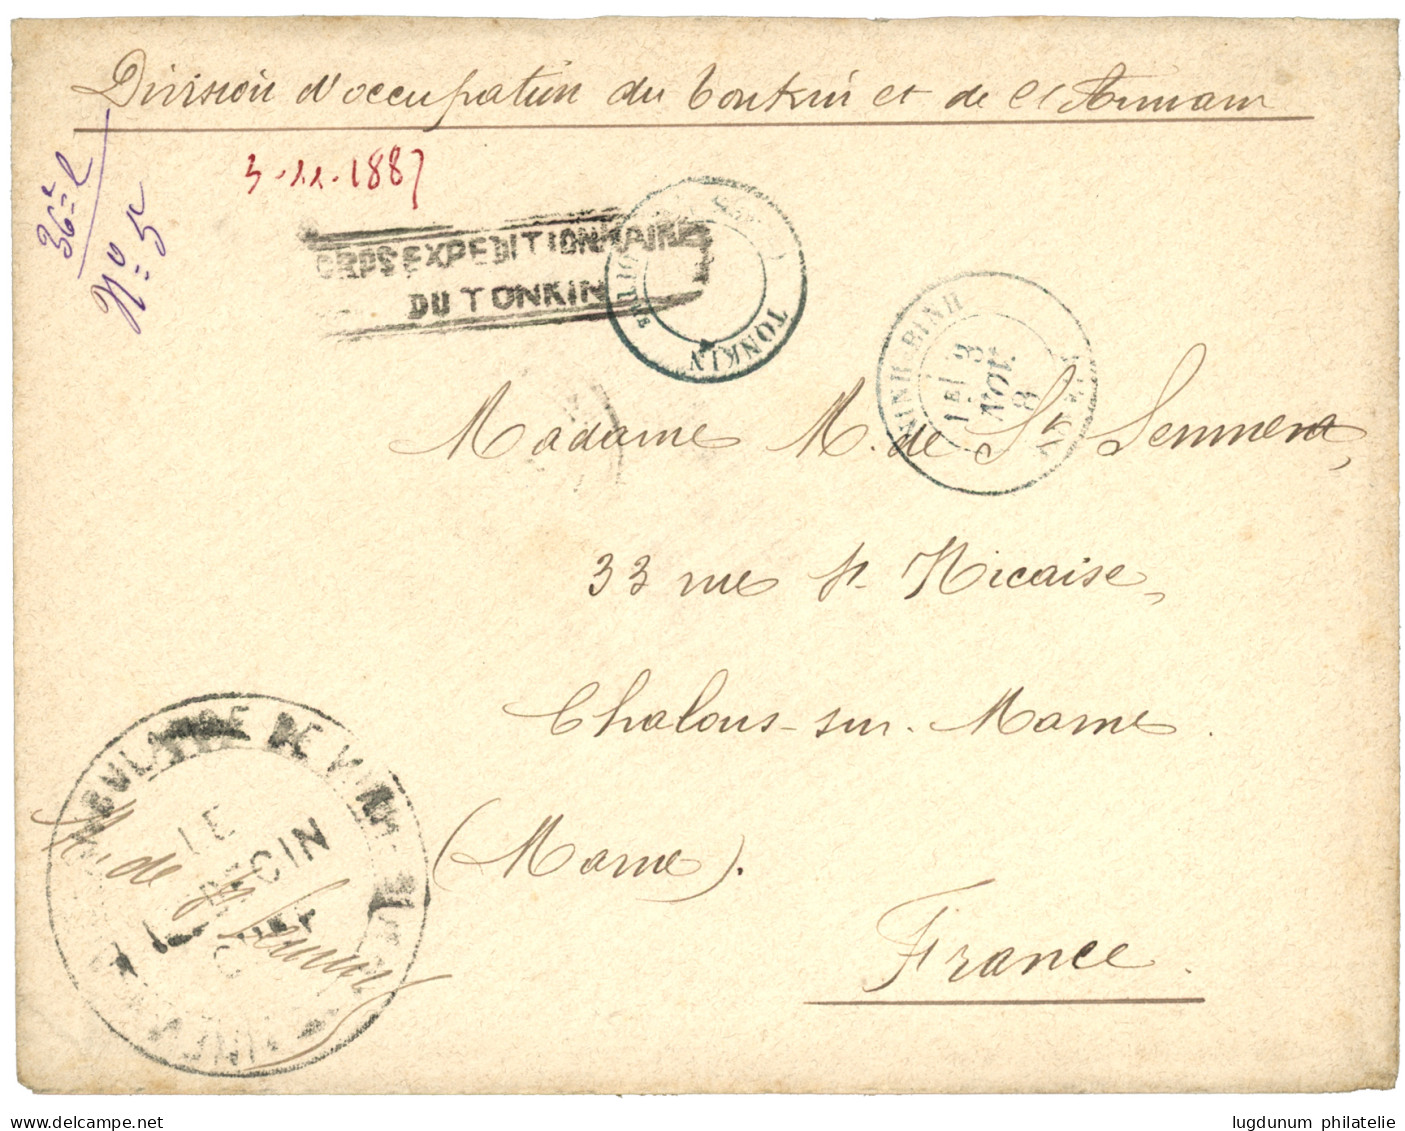 Division d'occupation du Tonkin et de l'Annam
36e = l
No = 5
3.11.1887
CORPS EXPEDITIONNAIRE
DU TONKIN
TONKIN
NINH-BINH
1E 3
NOV.
8
Madame M. de St Sermen,
33 rue St. Nicaise,
Chalons-sur-Marne.
(Marne).
France.
AMBULANCE DE NINH-
LE
MEDECIN
CHEF
M. de St
delcampe.net
lugdunum philatelie